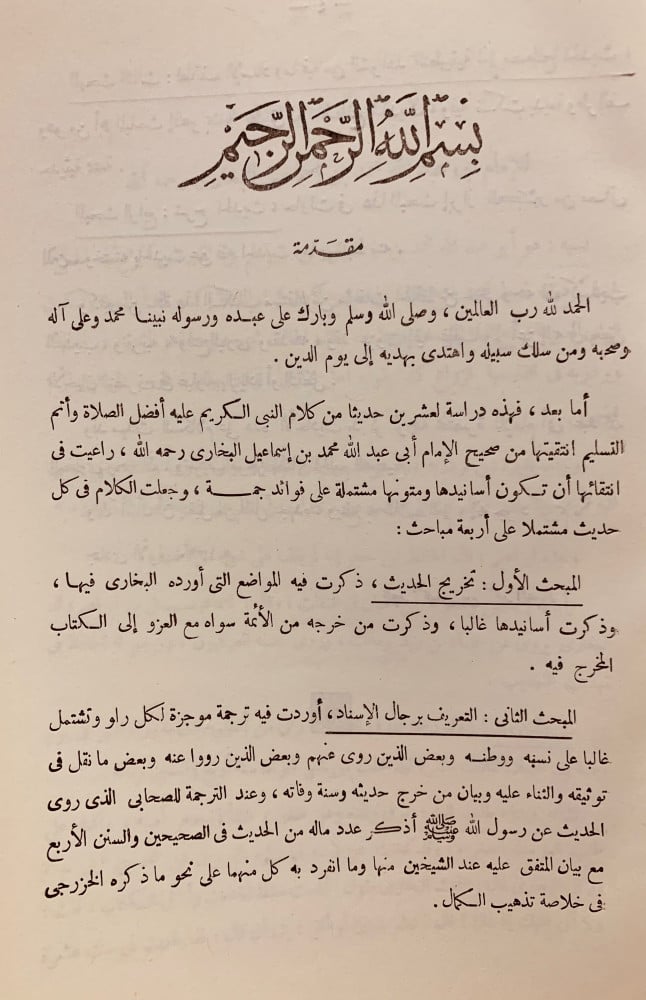 بسم الله الرحمن الرحيم
مقدمة
الحمد لله رب العالمين ، وصلى الله وسلم وبارك على عبده ورسوله نبينا محمد وعلى آله
وصحبه ومن سلك سبيله واهتدى بهديه إلى يوم الدين .
أما بعد ، فهذه دراسة لعشرين حديثا من كلام النبى الكريم عليه أفضل الصلاة وأتم
التسليم انتقيتها من صحيح الإمام أبى عبد الله محمد بن إسماعيل البخارى رحمه الله ، راعيت فى
انتقائها أن تكون أسانيدها ومتونها مشتملة على فوائد جمة ، وجعلت الكلام فى كل
حديث مشتملا على أربعة مباحث :
المبحث الأول : تخريج الحديث ، ذكرت فيه المواضع التى أورده البخارى فيها ،
وذكرت أسانيدها غالبا ، وذكرت من خرجه من الأئمة سواه مع العزو إلى الكتاب
المخرج فيه .
المبحث الثانى : التعريف برجال الإسناد ، أوردت فيه ترجمة موجزة لكل راو وتشتمل
غالبا على نسبه ووطنه وبعض الذين روى عنهم وبعض الذين رووا عنه وبعض ما نقل فى
توثيقه والثناء عليه وبيان من خرج حديثه وسنة وفاته ، وعند الترجمة للصحابى الذى روى
الحديث عن رسول الله ﷺ أذكر عدد ماله من الحديث فى الصحيحين والسنن الأربع
مع بيان المتفق عليه عند الشيخين منها وما انفرد به كل منهما على نحو ما ذكره الخزرجى
فى خلاصة تذهيب الكمال .